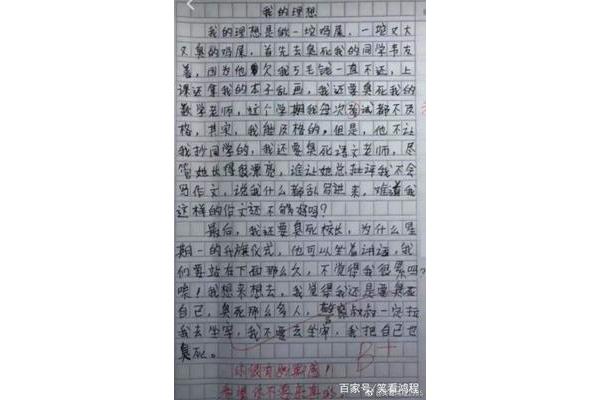 我的理想
我的理想是做一坨屎尿，一坨又大
又臭的屎尿，首先去臭死我的同学韦友
善，因为他欠我5毛钱一直不还，上
课还拿我的本子乱画，我还要臭死我的
数学老师，这个学期我每次考试都不及
格，其实，我能及格的，但是，他不让
我抄同学的，我还要臭死语文老师，尽
管她长得很漂亮，谁让她总批评我不会
写作文，说我什么都乱写进来，难道我
这样的作文还不够好吗？
最后，我还要臭死校长，为什么星
期一的升旗仪式，他可以坐着讲话，我
们要站在下面那么久，不觉得我很累吗？
唉！我想来想去，我觉得我还是要臭死
自己，臭死那么多人，警察叔叔一定拉
我去坐牢，我不要去坐牢，我把自己也
臭死。
B+
你很有幽默感！
希望你不要来真的．
百家号/笑看鸿程